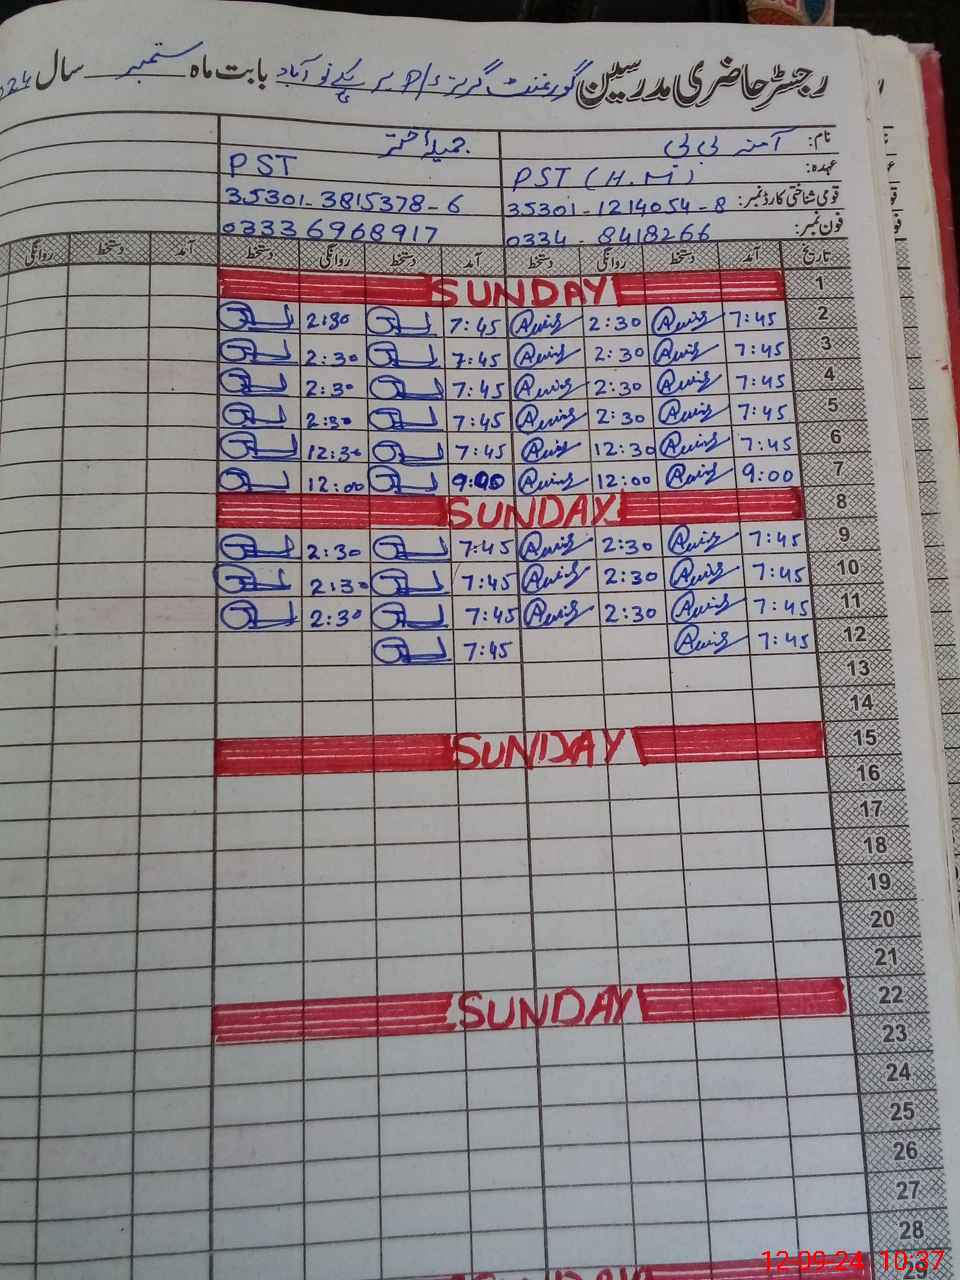 رجسٹر حاضری مدرسین گورنمنٹ گرلز بابت ماہ ستمبر سال
نام: آمنہ بی بی جمیلہ اختر
عہدہ: PST (H.M) PST
قومی شناختی کارڈ نمبر: 35301-1214054-8 35301-3815378-6
فون نمبر: 0334-8418266 03336968917
تاریخ آمد دستخط روانگی دستخط آمد دستخط روانگی دستخط آمد دستخط روانگی
1 SUNDAY
2 7:45 2:30 7:45 2:30
3 7:45 2:30 7:45 2:30
4 7:45 2:30 7:45 2:30
5 7:45 2:30 7:45 2:30
6 7:45 12:30 7:45 12:30
7 9:00 12:00 9:00 12:00
8 SUNDAY
9 7:45 2:30 7:45 2:30
10 7:45 2:30 7:45 2:30
11 7:45 2:30 7:45 2:30
12 7:45 7:45
13
14
15 SUNDAY
16
17
18
19
20
21
22 SUNDAY
23
24
25
26
27
28
12-09-24 10:37